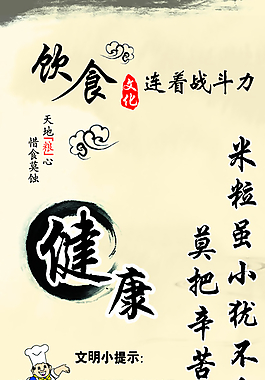 饮食文化连着战斗力
天地「粮」心
惜食莫蚀
健康
米粒虽小犹不
莫把辛苦
文明小提示: